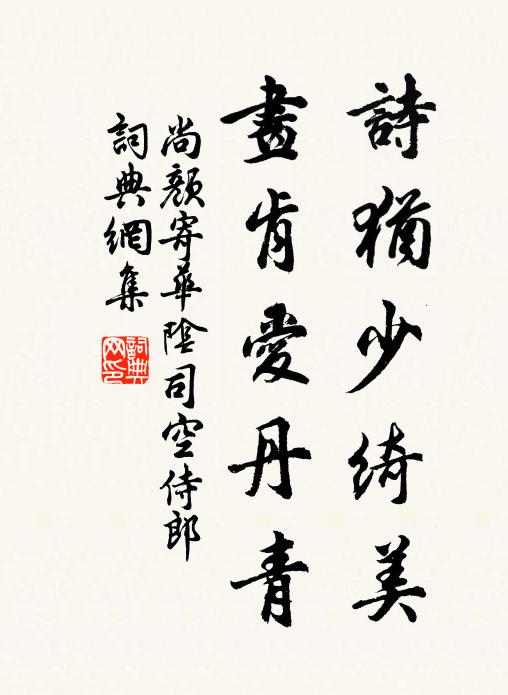 詩猶少綺美
畫肯愛丹青
尚顏寄華陰司空侍郎
詞典網集
詞典网印